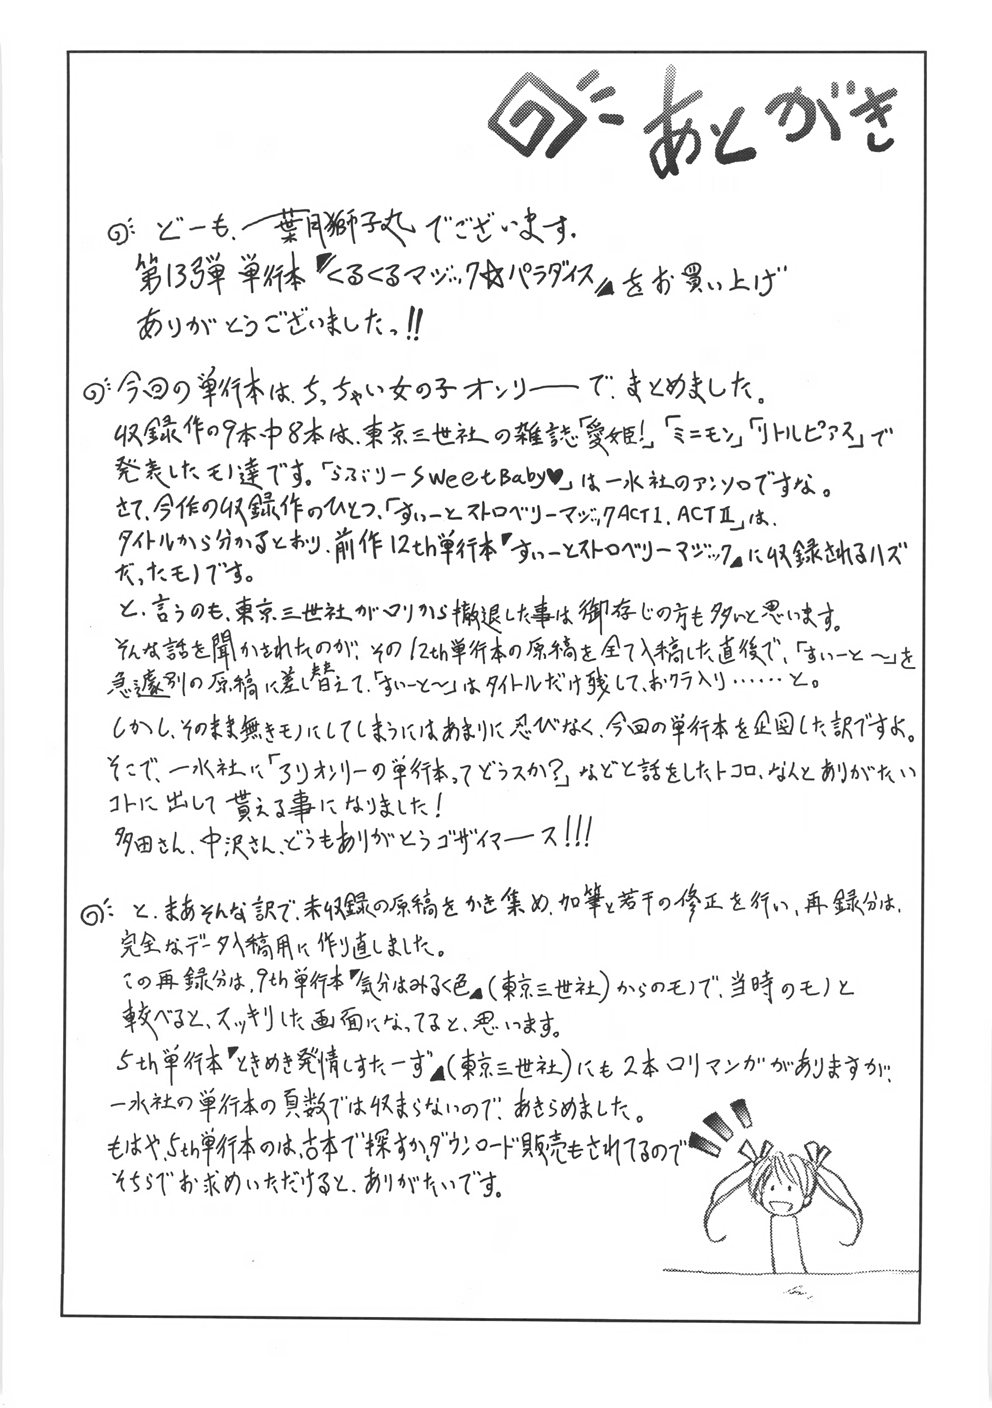 あとがき
どーも、一葉月獅子丸でございます。
第13弾 単行本『くるくるマジック☆パラダイス』をお買い上げ
ありがとうございましたっ!!
今回の単行本は、ちっちゃい女の子オンリーーで、まとめました。
収録作の9本中8本は、東京三世社の雑誌「愛姫!」「ミニモン」「リトルピアス」で
発表したモノ達です。「らぶりーSweetBaby♥」は一水社のアンソロですな。
さて、今作の収録作のひとつ、「すぃーとストロベリーマジックACTⅠ.ACTⅡ」は、
タイトルから分かるとおり、前作12th単行本『すぃーとストロベリーマジック』に収録されるハズ
だったモノです。
と、言うのも、東京三世社がロリから撤退した事は御存じの方も多いと思います。
そんな話を聞かされたのが、その12th単行本の原稿を全て入稿した直後で、「すぃーと～」を
急遽別の原稿に差し替えて、「すぃーと～」はタイトルだけ残して、おクラ入り……と。
しかし、そのまま無きモノにしてしまうにはあまりに忍びなく、今回の単行本を企図した訳ですよ。
そこで、一水社に「ろりオンリーの単行本ってどうスか?」などと話をしたトコロ、なんとありがたい
コトに出して貰える事になりました!
多田さん、中沢さん、どうもありがとうゴザイマーース!!!
と、まあそんな訳で、未収録の原稿をかき集め、加筆と若干の修正を行い、再録分は、
完全なデータ入稿用に作り直しました。
この再録分は、9th単行本『気分はみるく色』(東京三世社)からのモノで、当時のモノと
較べると、スッキリした画面になってると、思います。
5th単行本『ときめき発情しすたーず』(東京三世社)にも2本ロリマンガがありますが、
一水社の単行本の頁数では収まらないので、あきらめました。
もはや、5th単行本のは、古本で探すか、ダウンロード販売もされてるので
そちらでお求めいただけると、ありがたいです。